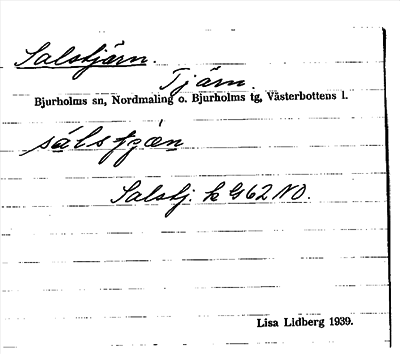 Salstjärn.
Tjärn.
Bjurholms sn, Nordmaling o. Bjurholms tg, Västerbottens l.
Salstj. k G62 NO.
Lisa Lidberg 1939.